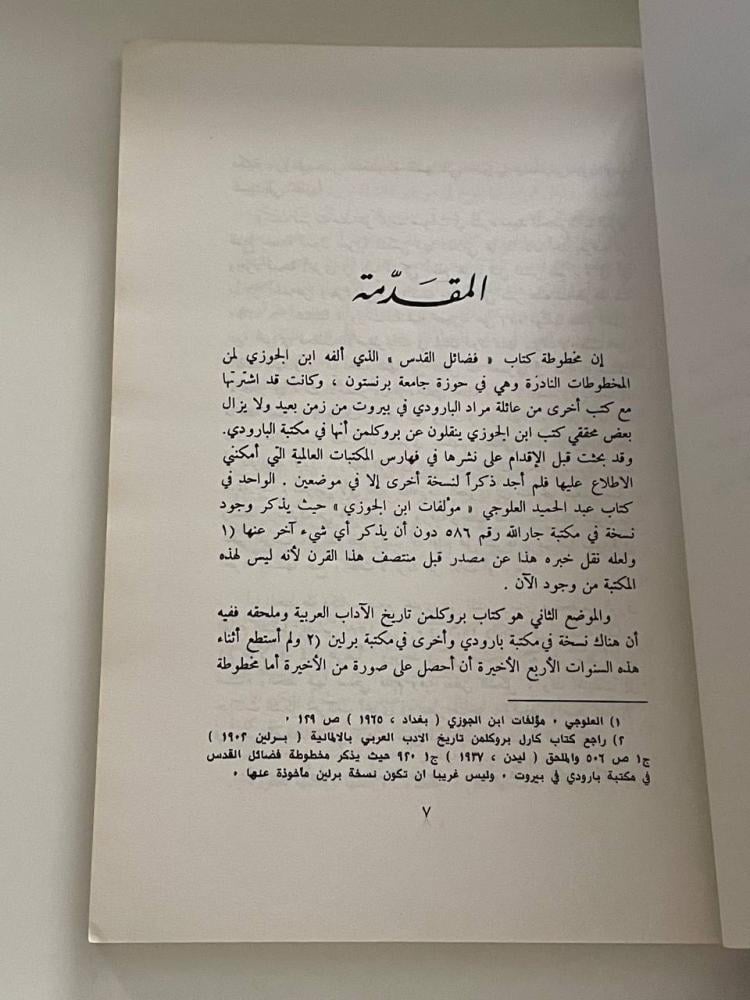 المقدّمة
إن مخطوطة كتاب « فضائل القدس » الذي ألفه ابن الجوزي لمن
المخطوطات النادرة وهي في حوزة جامعة برنستون ، وكانت قد اشترتها
مع كتب أخرى من عائلة مراد البارودي في بيروت من زمن بعيد ولا يزال
بعض محققي كتب ابن الجوزي ينقلون عن بروكلمن أنها في مكتبة البارودي.
وقد بحثت قبل الإقدام على نشرها في فهارس المكتبات العالمية التي أمكنني
الاطلاع عليها فلم أجد ذكراً لنسخة أخرى إلا في موضعين . الواحد في
كتاب عبد الحميد العلوجي « مؤلفات ابن الجوزي » حيث يذكر وجود
نسخة في مكتبة جارالله رقم ٥٨٦ دون أن يذكر أي شيء آخر عنها (١
ولعله نقل خبره هذا عن مصدر قبل منتصف هذا القرن لأنه ليس لهذه
المكتبة من وجود الآن .
والموضع الثاني هو كتاب بروكلمن تاريخ الآداب العربية وملحقه ففيه
أن هناك نسخة في مكتبة بارودي وأخرى في مكتبة برلين (٢ ولم أستطع أثناء
هذه السنوات الأربع الأخيرة أن أحصل على صورة من الأخيرة أما مخطوطة
١) العلوجي ، مؤلفات ابن الجوزي ( بغداد ، ١٩٦٥ ) ص ١٢٩ .
٢) راجع كتاب كارل بروكلمن تاريخ الادب العربي بالالمانية ( برلين ١٩٠٢ )
ج١ ص ٥٠٦ والملحق ( ليدن ، ١٩٣٧ ) ج١ ٩٢٠ حيث يذكر مخطوطة فضائل القدس
في مكتبة بارودي في بيروت . وليس غريبا ان تكون نسخة برلين مأخوذة عنها .
٧